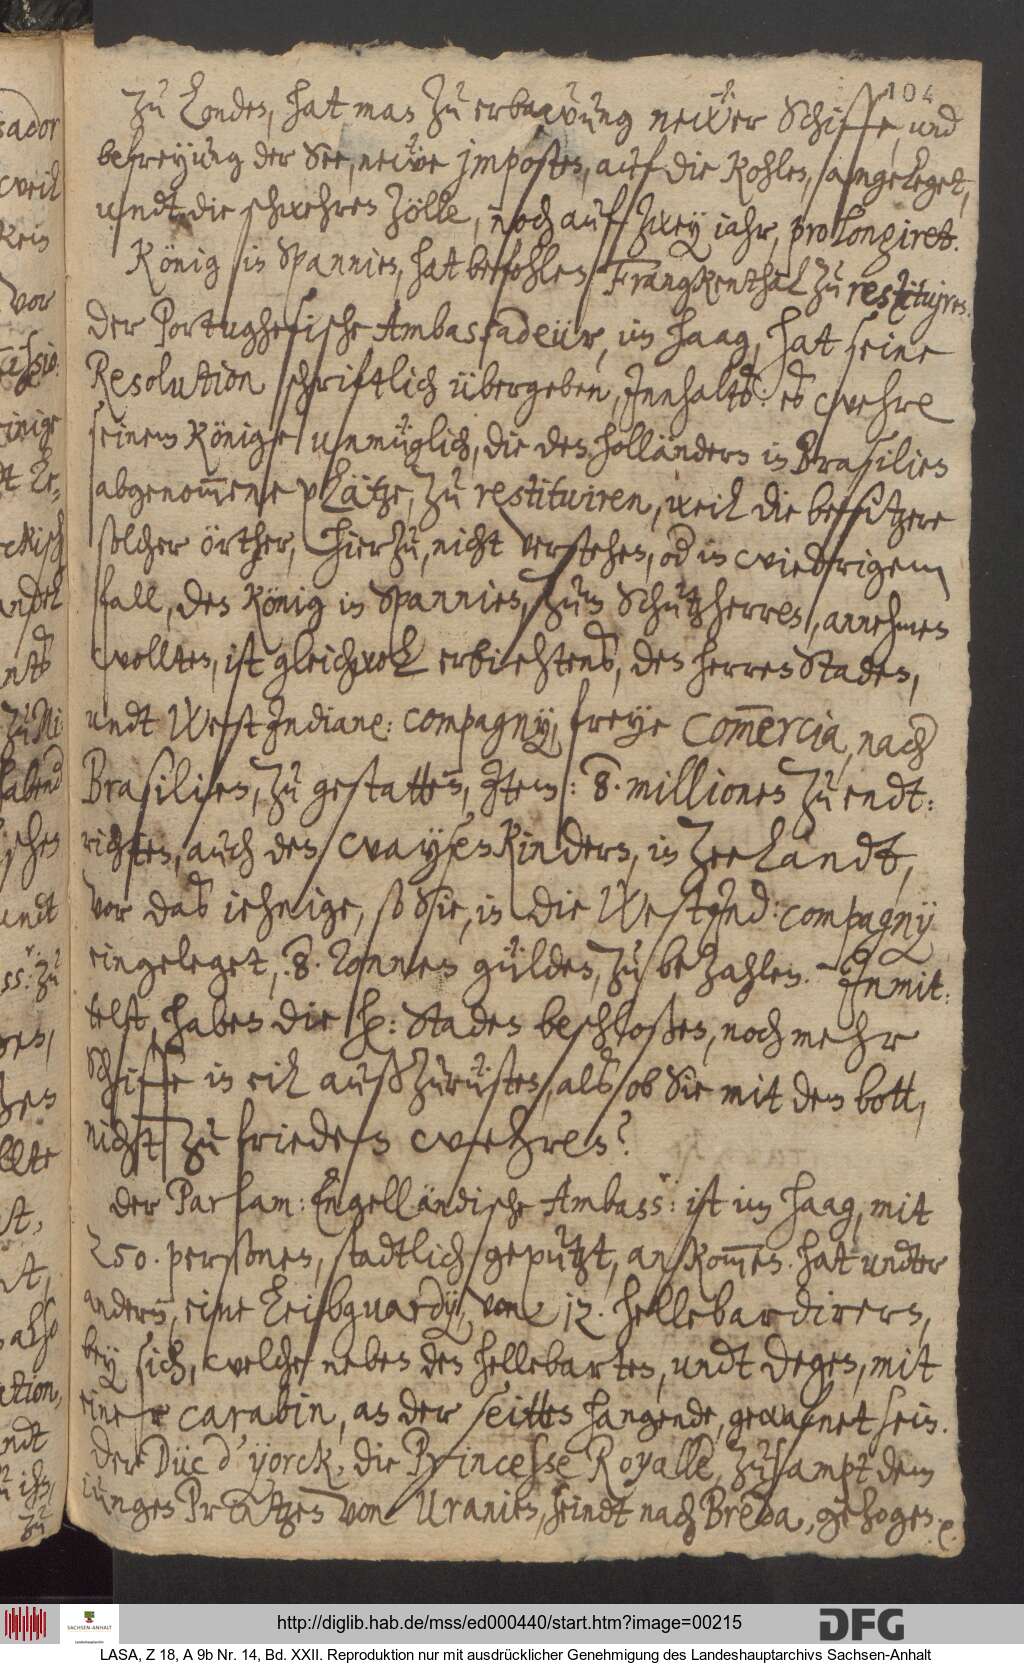 104
Zu Londen, hat man zu erbawung newer Schiffe, und
befreyung der See, newe jmposten, auf die Kohlen, angeleget,
undt die schwehren Zölle, noch auf zwey jahr, prolongiret.
König in Spannien, hat befohlen Frangkenthal zu restituiren.
Der Portughesische Ambassadeur, im Haag, hat seine
Resolution schriftlich übergeben, Innhalts: es wehre
seinem Könige unmüglich, die den Holländern in Brasilien
abgenom̄ene plätze, zu restituiren, weil die besitzere
solcher örther, hierzu, nicht verstehen, od in wiedrigem
fall, den König in Spannien, zum Schutzherren, annehmen
wollten, ist gleichwol erbiehtens, den Herren Staden,
undt West Indiane: compagny, freye Com̄ercia, nach
Brasilien, zu gestatten, Item: 8. millionen zu endt:
richten, auch den waysenKindern, in Zeelandt,
vor das iehnige, so Sie, in die West Ind: compagny
eingeleget, .8. Tonnen gülden, zu bezahlen. - Inmit:
telst, haben die H: Staden beschloßen, noch mehr
Schiffe in eil außzurüsten, als ob Sie mit dem bott,
nicht zu frieden wehren?
Der Parlam: Engelländische Ambass: ist im Haag, mit
250. personen, stadtlich geputzt, ankom̄en. hat undter
andern, eine Leibguardy, von 12. Hellebardirern,
bey sich, welche neben den Hellebarten, undt Degen, mit
einer carabin, an der seitten hangende, gewafnet sein.
Der Duc d'yorck, die Princesse Royalle, zusampt dem
iungen Printzen von Uranien, seindt nach Breda, gezogen. 
http://diglib.hab.de/mss/ed000440/start.htm?image=00215
SACHSEN-ANHALT
DFG
LASA, Z 18, A 9b Nr. 14, Bd. XXII. Reproduktion nur mit ausdrücklicher Genehmigung des Landeshauptarchivs Sachsen-Anhalt